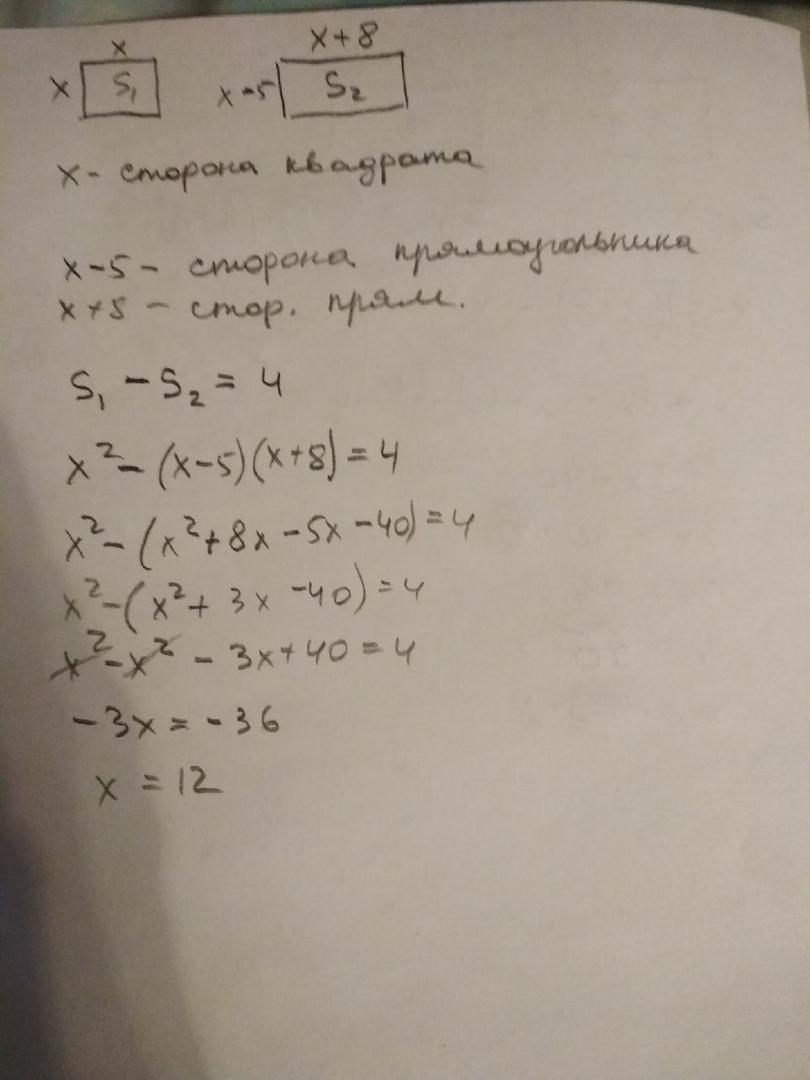 x x+8
x S₁ x-5 S₂
x - сторона квадрата
x-5 - сторона прямоугольника
x+8 - стор. прям.
S₁ - S₂ = 4
x² - (x-5)(x+8) = 4
x² - (x² + 8x - 5x - 40) = 4
x² - (x² + 3x - 40) = 4
x² - x² - 3x + 40 = 4
-3x = -36
x = 12